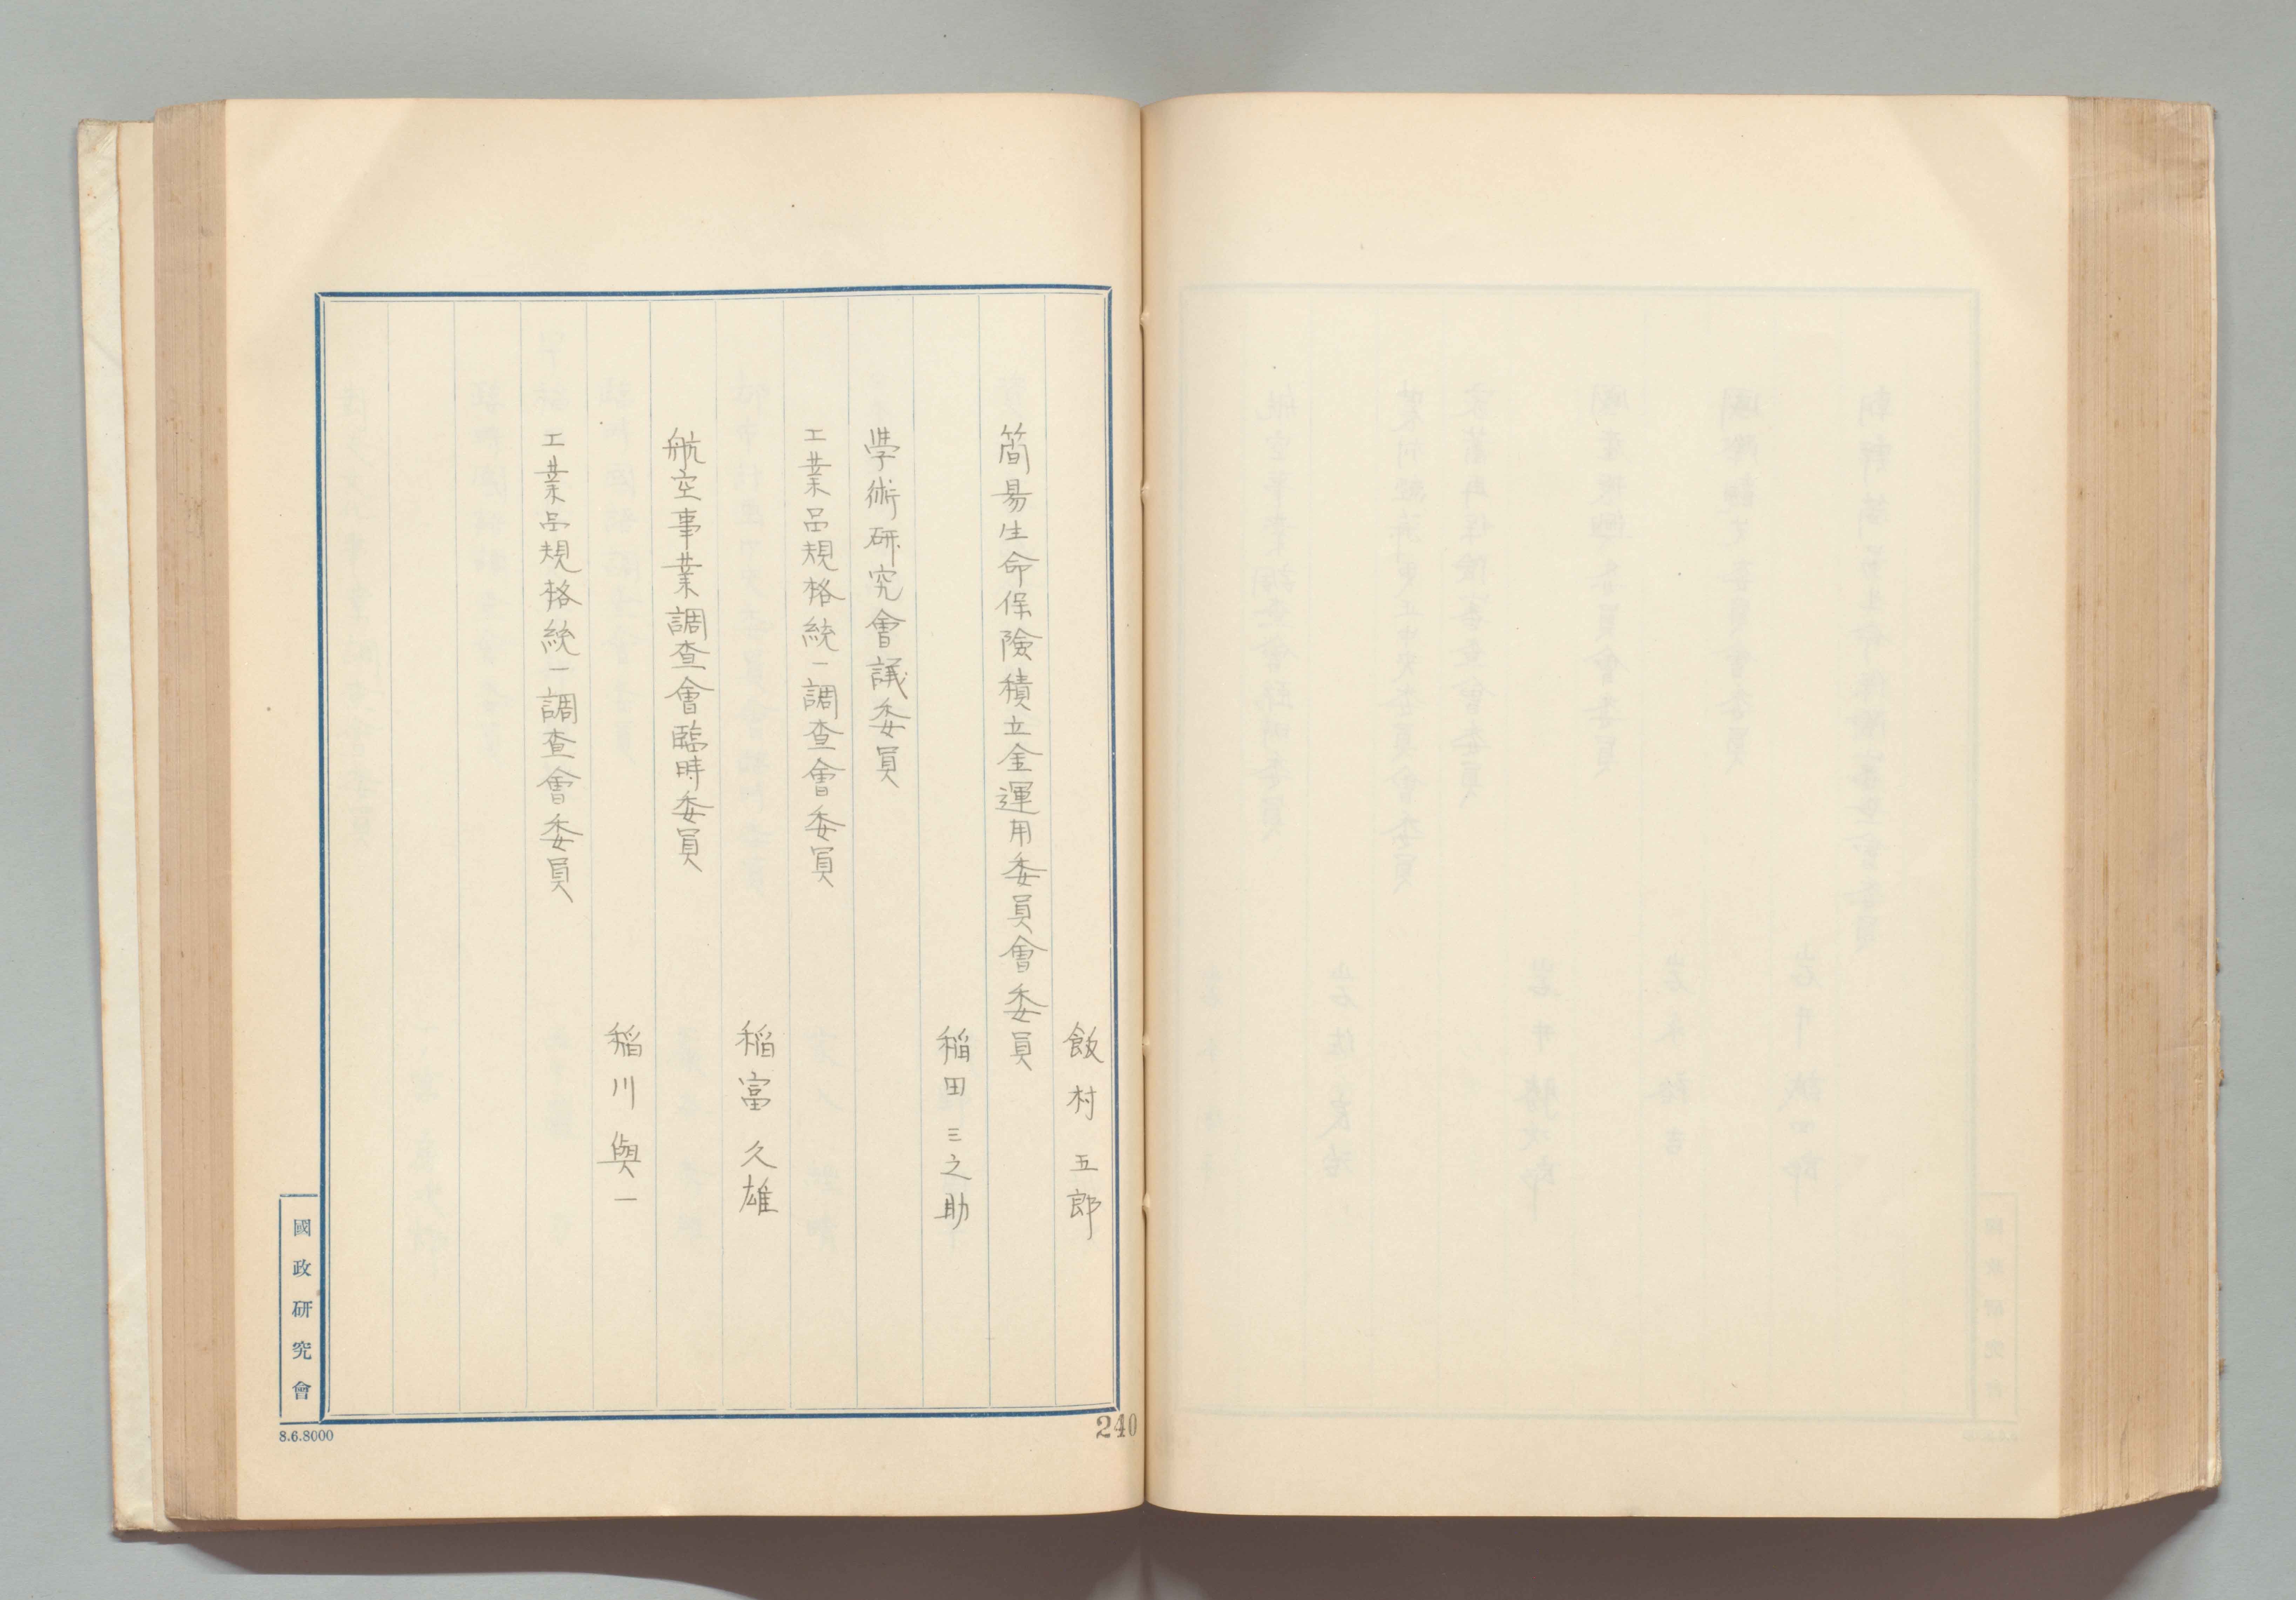 飯村五郎
簡易生命保險積立金運用委員會委員
稲田三之助
學術研究會議委員
工業品規格統一調査會委員
稲富久雄
航空事業調査會臨時委員
稲川與一
工業品規格統一調査會委員
國政研究會
8.6.8000
240